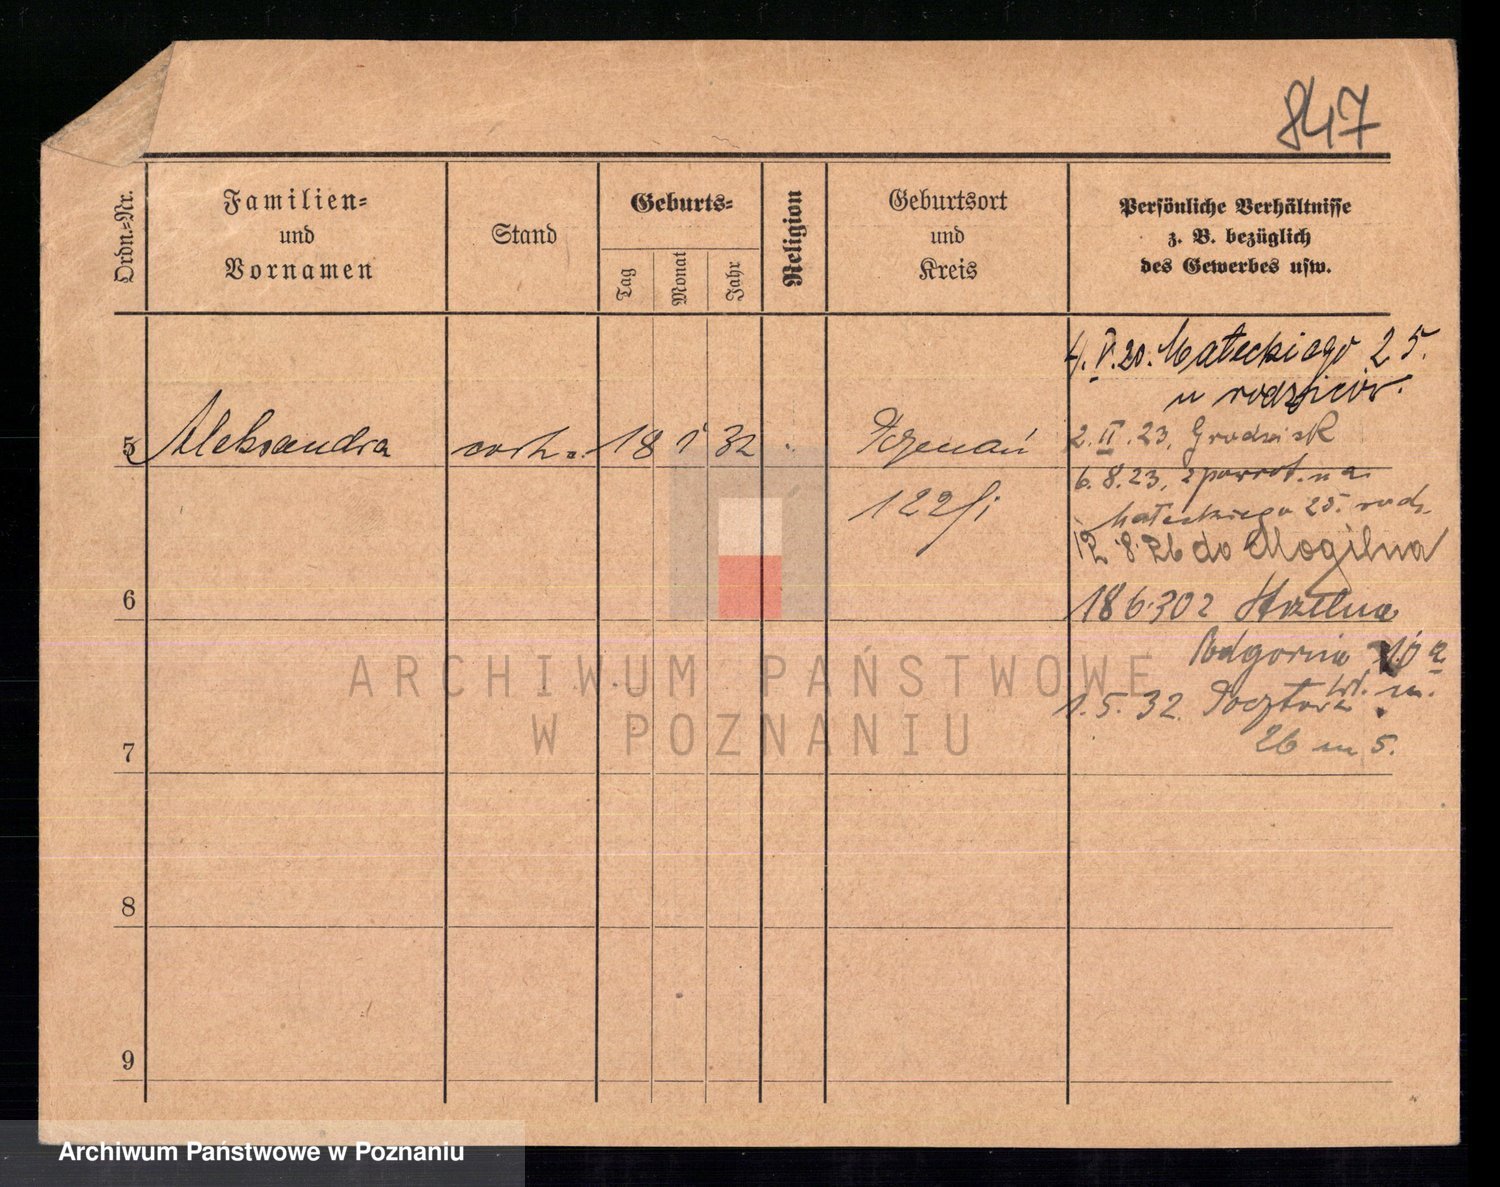 847
Ordn.-Nr.
Familien-
und
Vornamen
Stand
Geburts-
Tag
Monat
Jahr
Religion
Geburtsort
und
Kreis
Persönliche Verhältnisse
z. B. bezüglich
des Gewerbes usw.
4. V. 20. Małeckiego 25.
u rodziców.
5 Aleksandra córk. 18 1 32 Poznań
2. II. 23, Grodzisk
6. 8. 23, zpowrot. na
Małeckiego 25. rodz.
122
12 8 26 do Mogilna
6
18 6 30 z
Podgórna 10a
1. 5. 32.
26 m 5.
7
8
9
ARCHIWUM PAŃSTWOWE
W POZNANIU
Archiwum Państwowe w Poznaniu